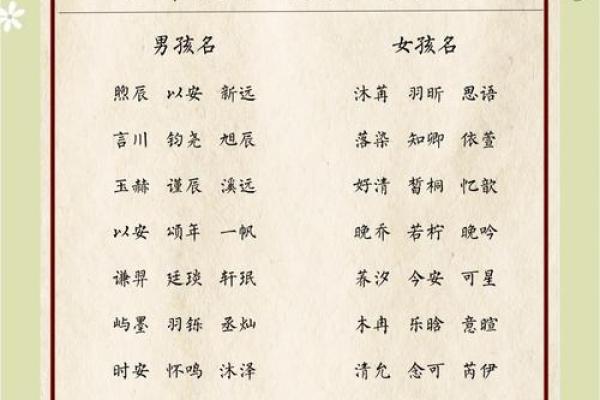 男孩名 女孩名
煦辰 以安 新远 沐苒 羽昕 思语
言川 钧尧 旭辰 落染 知卿 依萱
玉赫 谨辰 溪远 好清 皙桐 忆歆
以安 颂年 一帆 晚乔 若柠 晚吟
谦羿 廷琰 轩珉 荞汐 今安 可星
屿墨 羽铄 丞灿 木冉 乐晗 意暄
时安 怀鸣 沐泽 清允 念可 芮伊